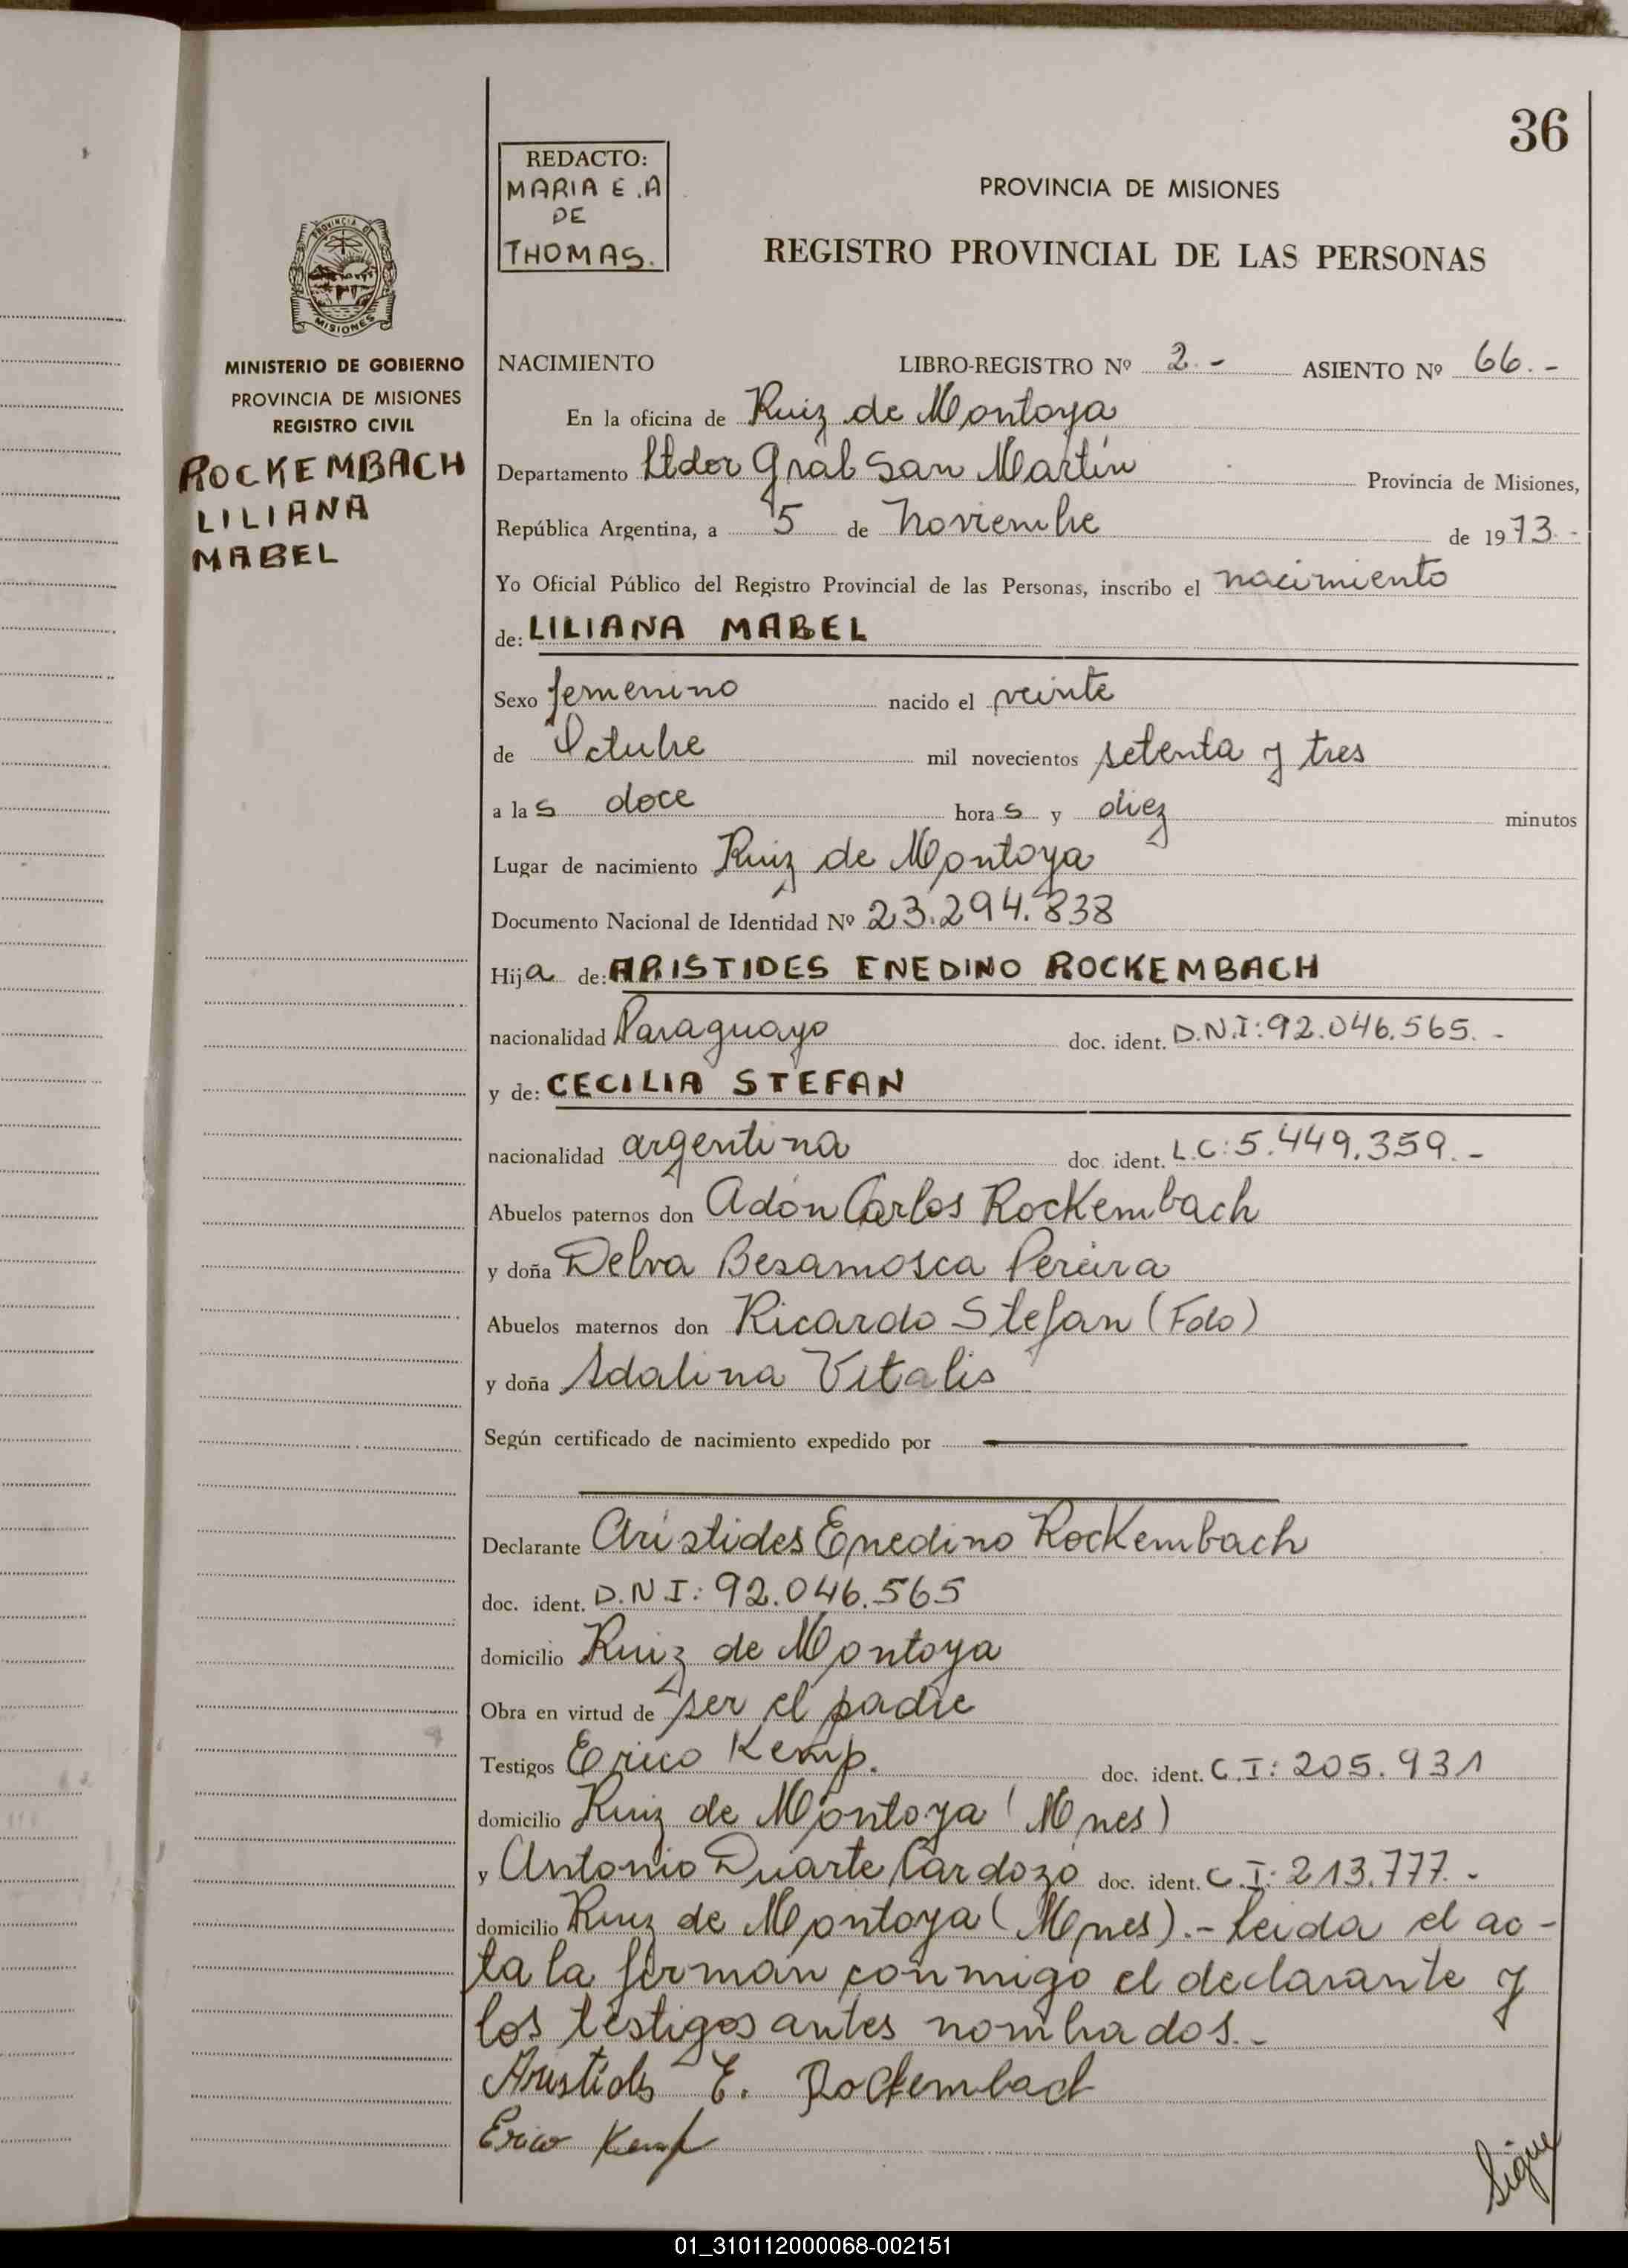 36
REDACTO:
MARIA E.A
DE
THOMAS.
PROVINCIA DE MISIONES
REGISTRO PROVINCIAL DE LAS PERSONAS
PROVINCIA DE
MISIONES
MINISTERIO DE GOBIERNO
PROVINCIA DE MISIONES
REGISTRO CIVIL
ROCKEMBACH
LILIANA
MABEL
NACIMIENTO LIBRO-REGISTRO Nº 2.- ASIENTO Nº 66.-
En la oficina de Ruiz de Montoya
Departamento Ltdor Gral San Martín Provincia de Misiones,
República Argentina, a 5 de Noviembre de 1973.-
Yo Oficial Público del Registro Provincial de las Personas, inscribo el nacimiento
de: LILIANA MABEL
Sexo femenino nacido el veinte
de Octubre mil novecientos setenta y tres
a las doce horas y diez minutos
Lugar de nacimiento Ruiz de Montoya
Documento Nacional de Identidad Nº 23.294.838
Hija de: ARISTIDES ENEDINO ROCKEMBACH
nacionalidad Paraguayo doc. ident. D.N.I: 92.046.565.-
y de: CECILIA STEFAN
nacionalidad argentina doc. ident. L.C: 5.449.359.-
Abuelos paternos don Adón Carlos Rockembach
y doña Delva Besamosca Pereira
Abuelos maternos don Ricardo Stefan (Fdo)
y doña Adalina Vitalis
Según certificado de nacimiento expedido por
Declarante Arístides Enedino Rockembach
doc. ident. D.N.I: 92.046.565
domicilio Ruiz de Montoya
Obra en virtud de ser el padre
Testigos Erico Kemp. doc. ident. C.I: 205.931
domicilio Ruiz de Montoya (Mnes)
y Antonio Duarte Cardozo doc. ident. C.I: 213.777.-
domicilio Ruiz de Montoya (Mnes).- Leida el ac-
ta la firman conmigo el declarante y
los testigos antes nombrados.-
Aristides E. Rockembach
Erico Kemp
Sigue
01_310112000068-002151